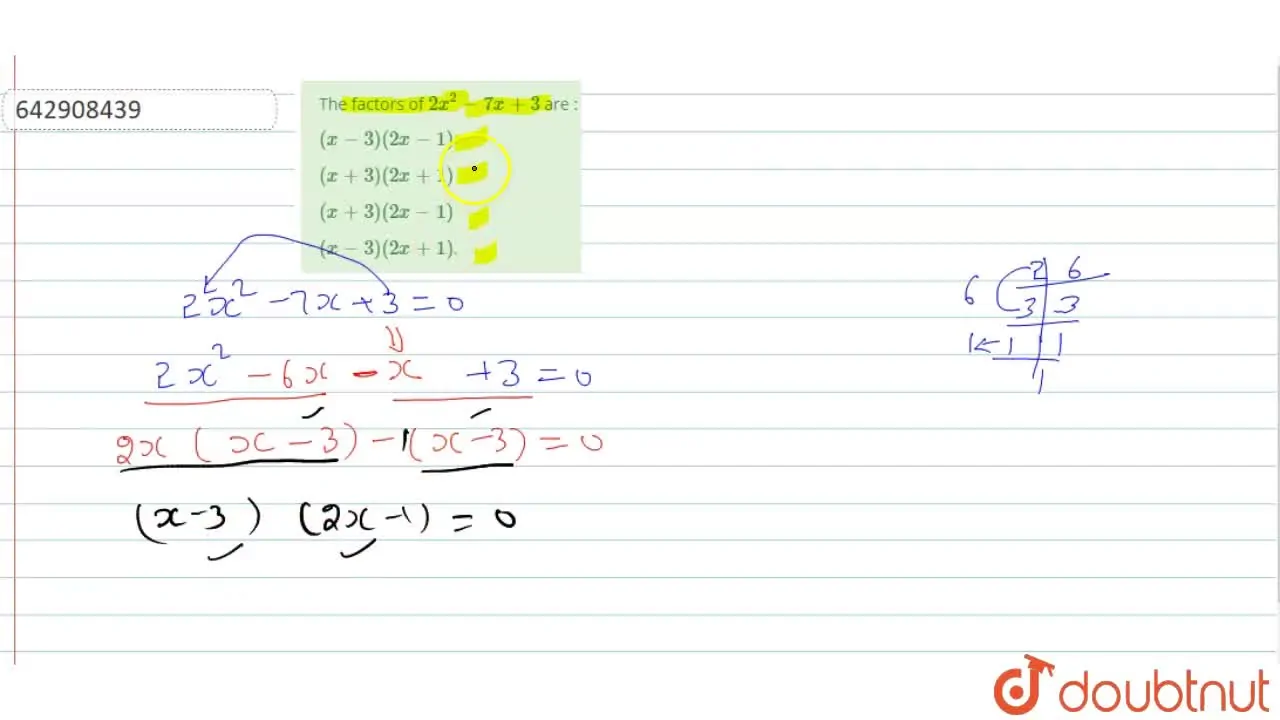 642908439
The factors of 2x² − 7x + 3 are :
(x − 3)(2x − 1)
(x + 3)(2x + 1)
(x + 3)(2x − 1)
(x − 3)(2x + 1).
2x² − 7x + 3 = 0
2x² − 6x − x + 3 = 0
2x (x − 3) − 1(x − 3) = 0
(x − 3) (2x − 1) = 0
2 6
6
3 3
1 ← 1 1
1
doubtnut